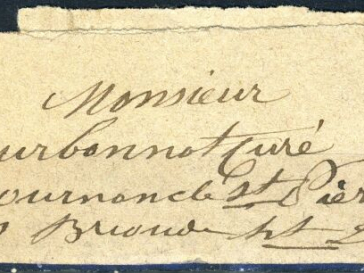 Monsieur
urbonnot Curé
ournoncle St Pier
Brioude ht